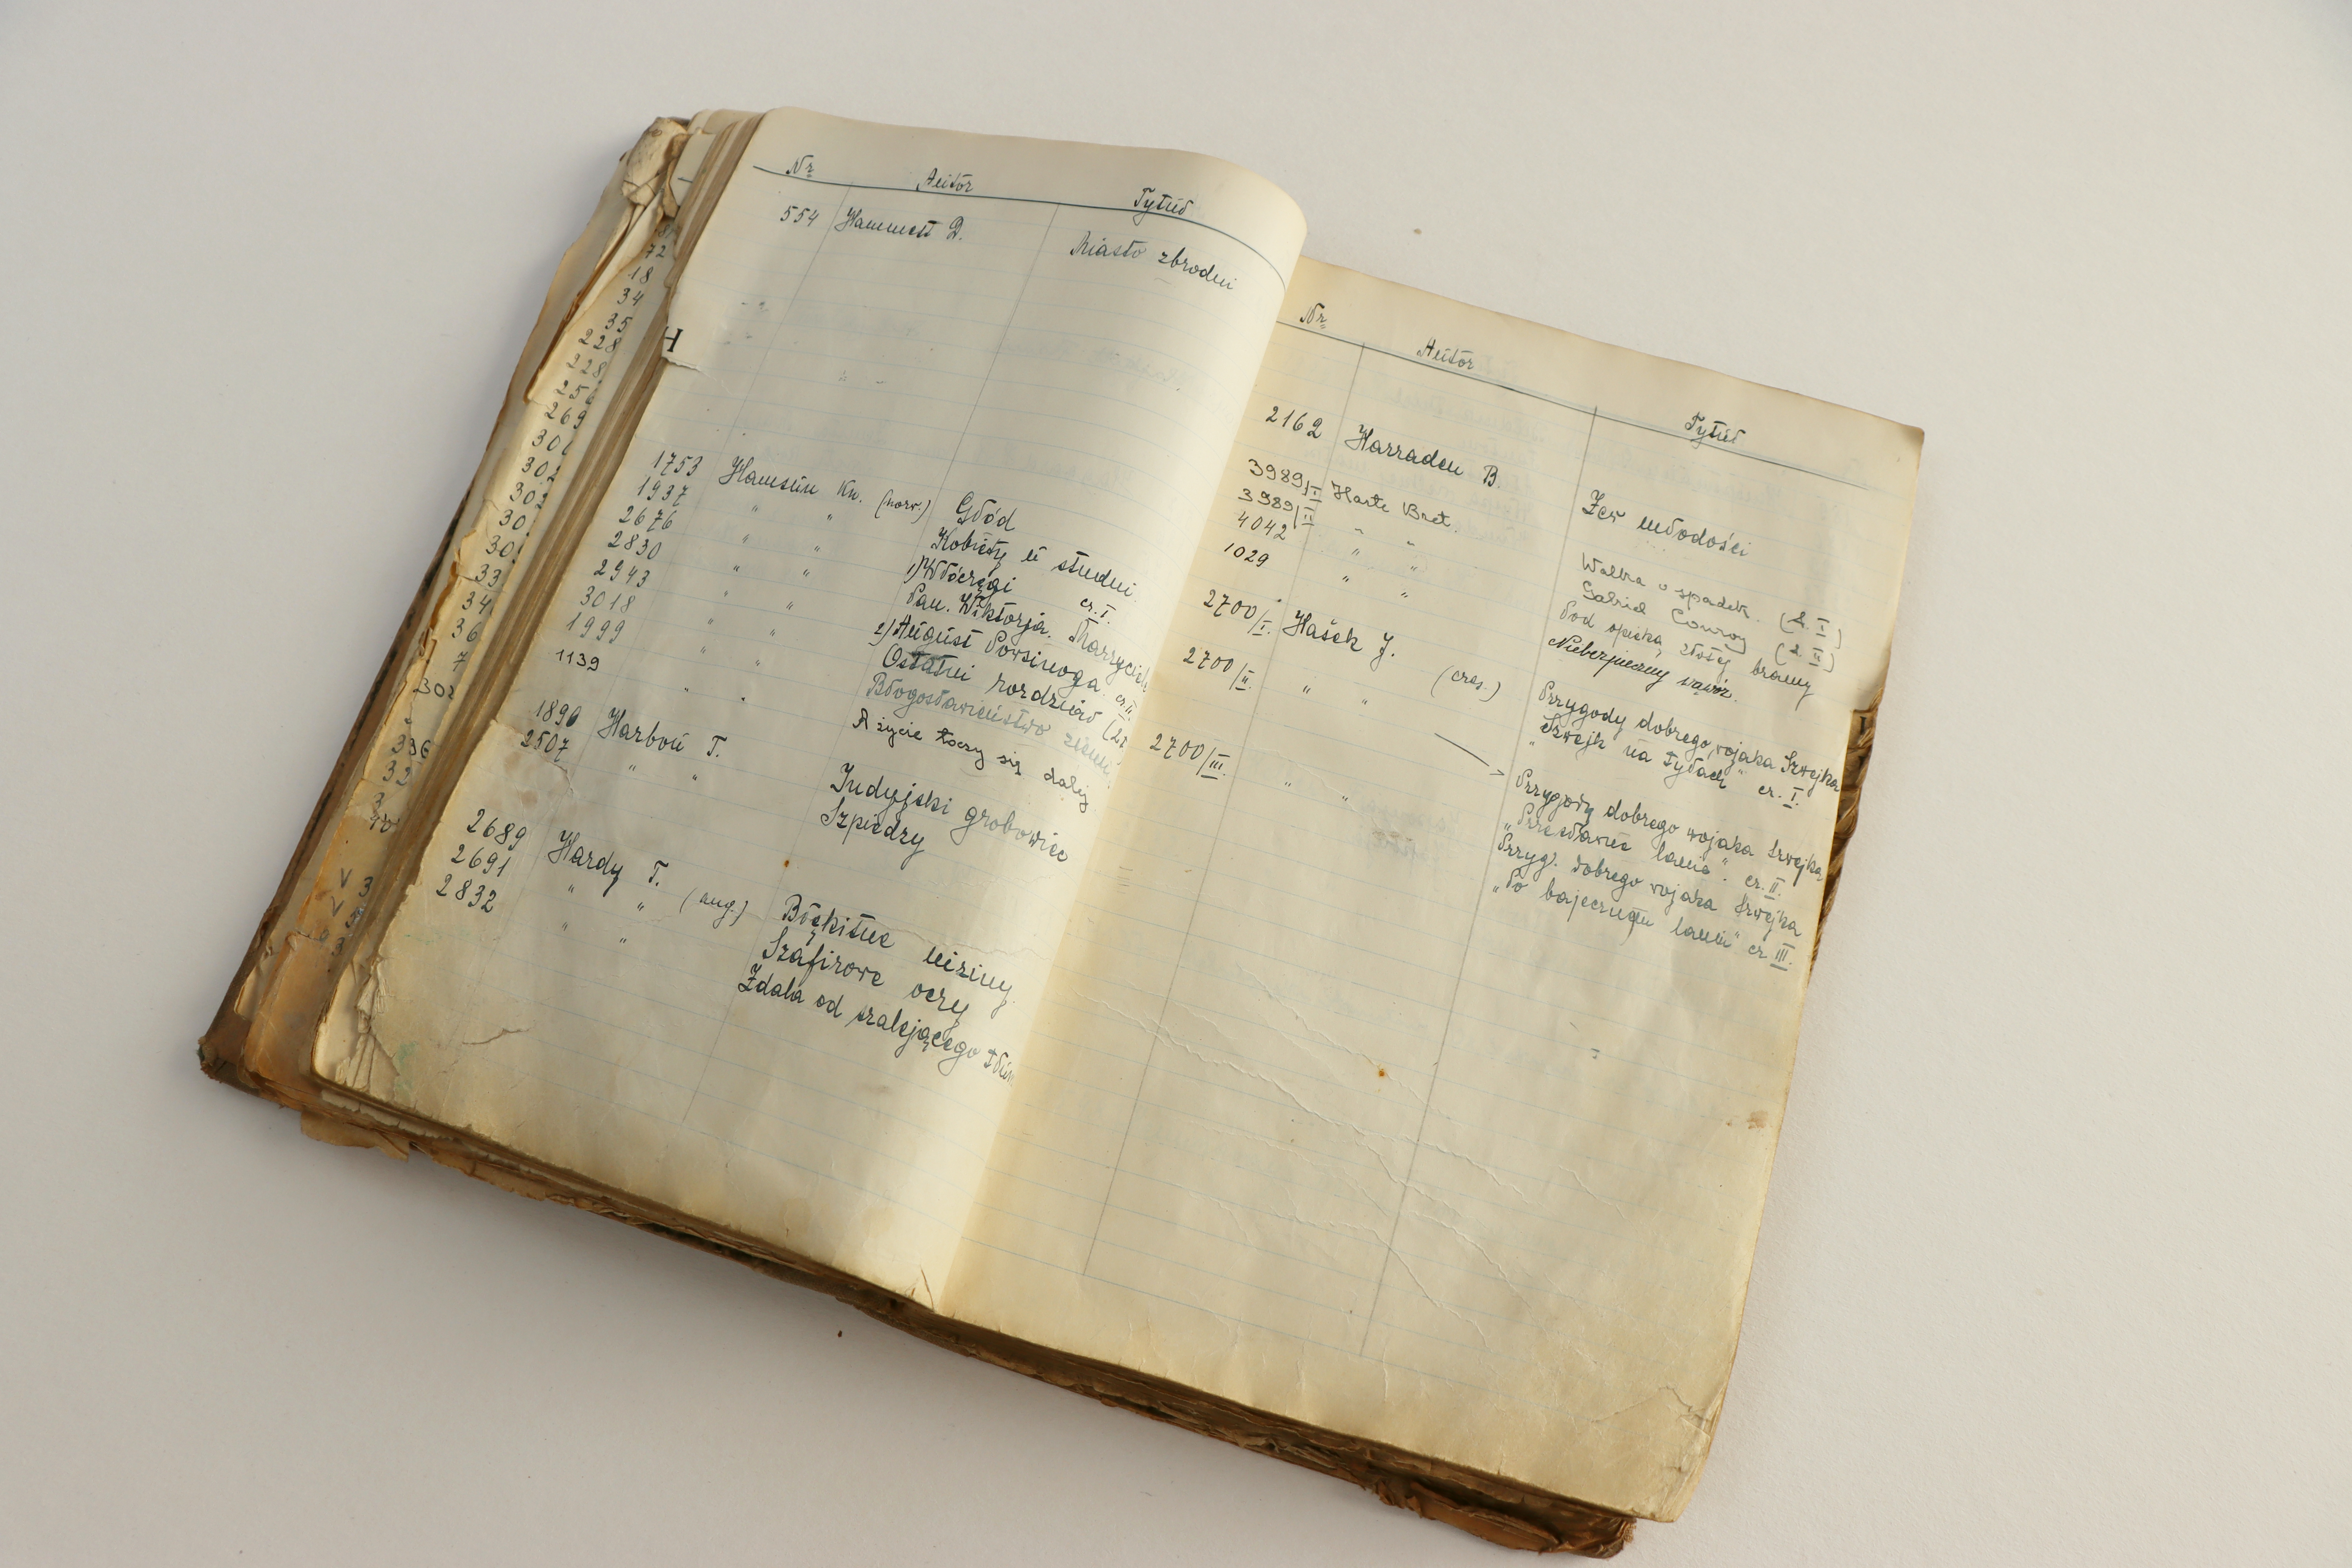 Nr Autor Tytuł
554 Hammett D. Miasto zbrodni
H
1753 Hamsun Kn. (norw.) Głód
1937 " " Kobiety u studni
2676 " " 1) Włóczęgi cz. I.
2830 " " Pan. Wiktorja. Marzyciele
2943 " " 2) August Powsinoga. cz. II.
3018 " " Ostatni rozdział (2
1999 " " Błogosławieństwo ziemi
1139 " " A życie toczy się dalej
1890 Harbou T. Indyjski grobowiec
2507 " " Szpiedzy
2689 Hardy T. (ang.) Błękitne
2691 " " Szafirowe oczy
2832 " " Zdala od szalejącego tłumu
72
18
34
35
228
228
256
269
301
302
302
30
30
33
34
36
7
302
336
32
3
40
V 3
V 5
3
Nr Autor Tytuł
2162 Harraden B. Zew młodości
3989/I Harte Bret. Walka o spadek. (t. I)
3989/II " " Gabriel Conroy (t. II)
4042 " " Pod opieką złotej bramy
1029 " " Niebezpieczny wąwóz.
2700/I. Hašek J. (czes.) Przygody dobrego wojaka Szwejka
"Szwejk na tyłach" cz. I.
2700/II. " " Przygody dobrego wojaka Szwejka
"Przesławne lanie". cz. II.
2700/III. " " Przyg. dobrego wojaka Szwejka
"Po bajecznem laniu" cz III.